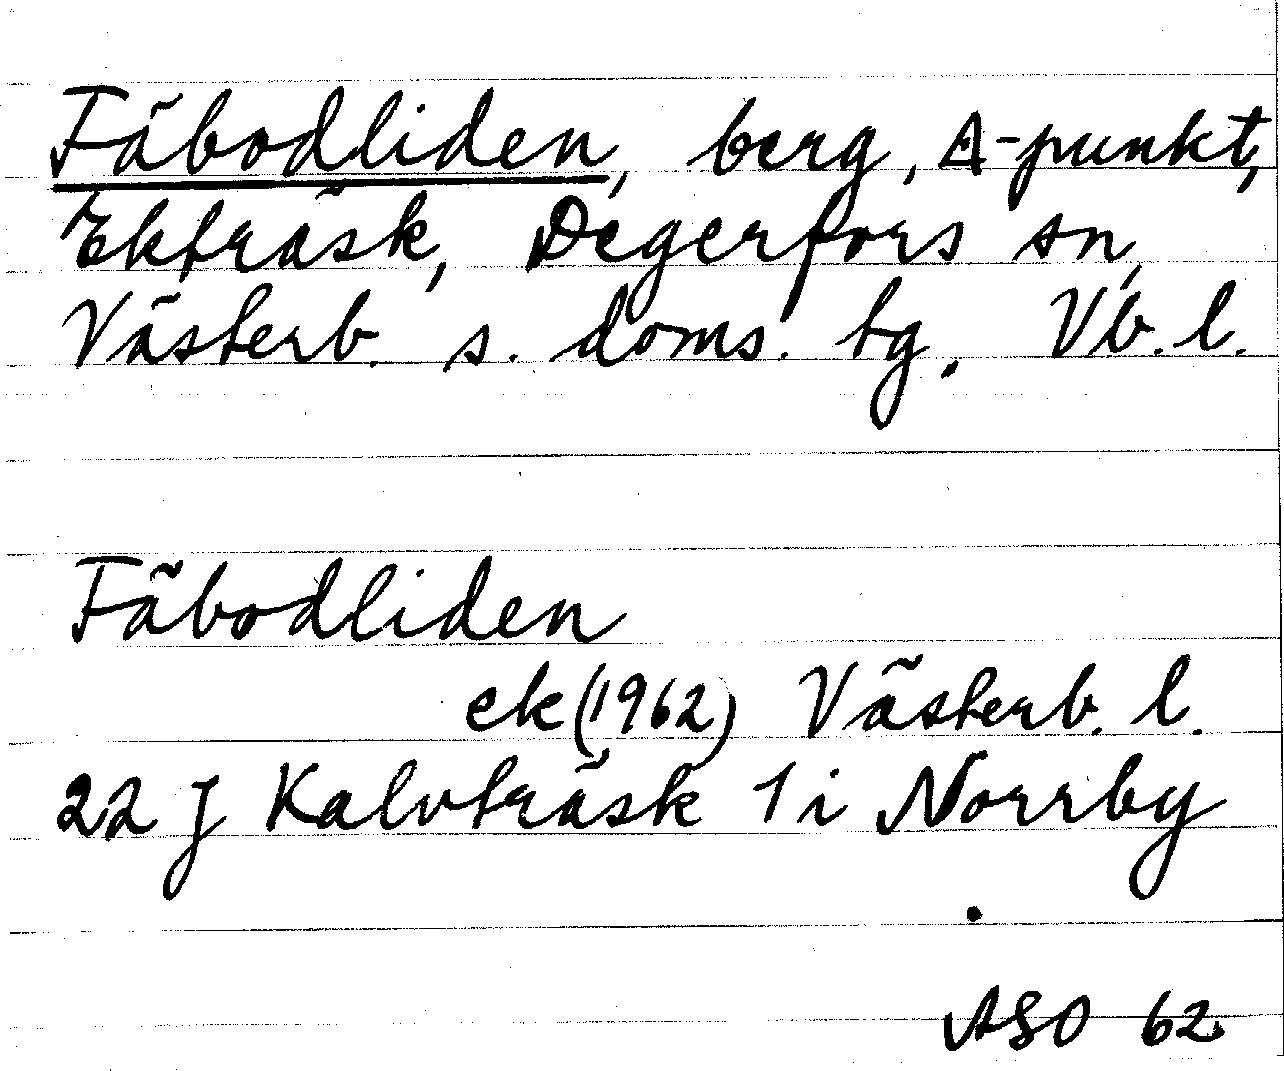 Fäbodliden, berg, A-punkt,
Ekträsk, Degerfors sn,
Västerb. s. doms. tg. Vb. l.
Fäbodliden
ek (1962) Västerb. l.
22 J Kalvträsk 1 i Norrby
ASO 62